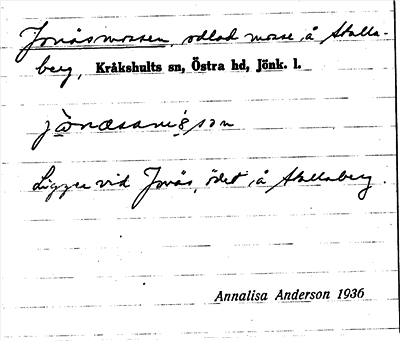 Jonåsmossen, odlad mosse, å Skalla-
berg, Kråkshults sn, Östra hd, Jönk. l.
Ligger vid Jonås, ödet, å Skallaberg.
Annalisa Anderson 1936